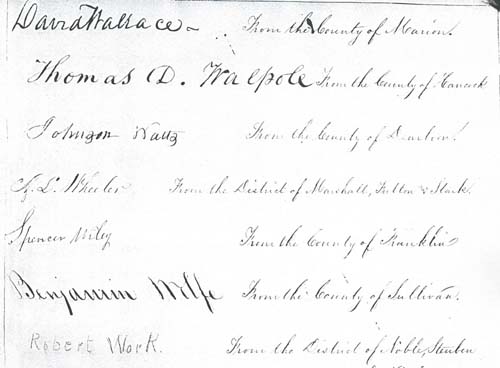 David Wallace – From the County of Marion.
Thomas D. Walpole From the County of Hancock
Johnson Watts From the County of Dearborn.
A. L. Wheeler From the District of Marshall, Fulton & Stark.
Spencer Wiley From the County of Franklin
Benjamin Wolfe From the County of Sullivan.
Robert Work. From the District of Noble, Steuben